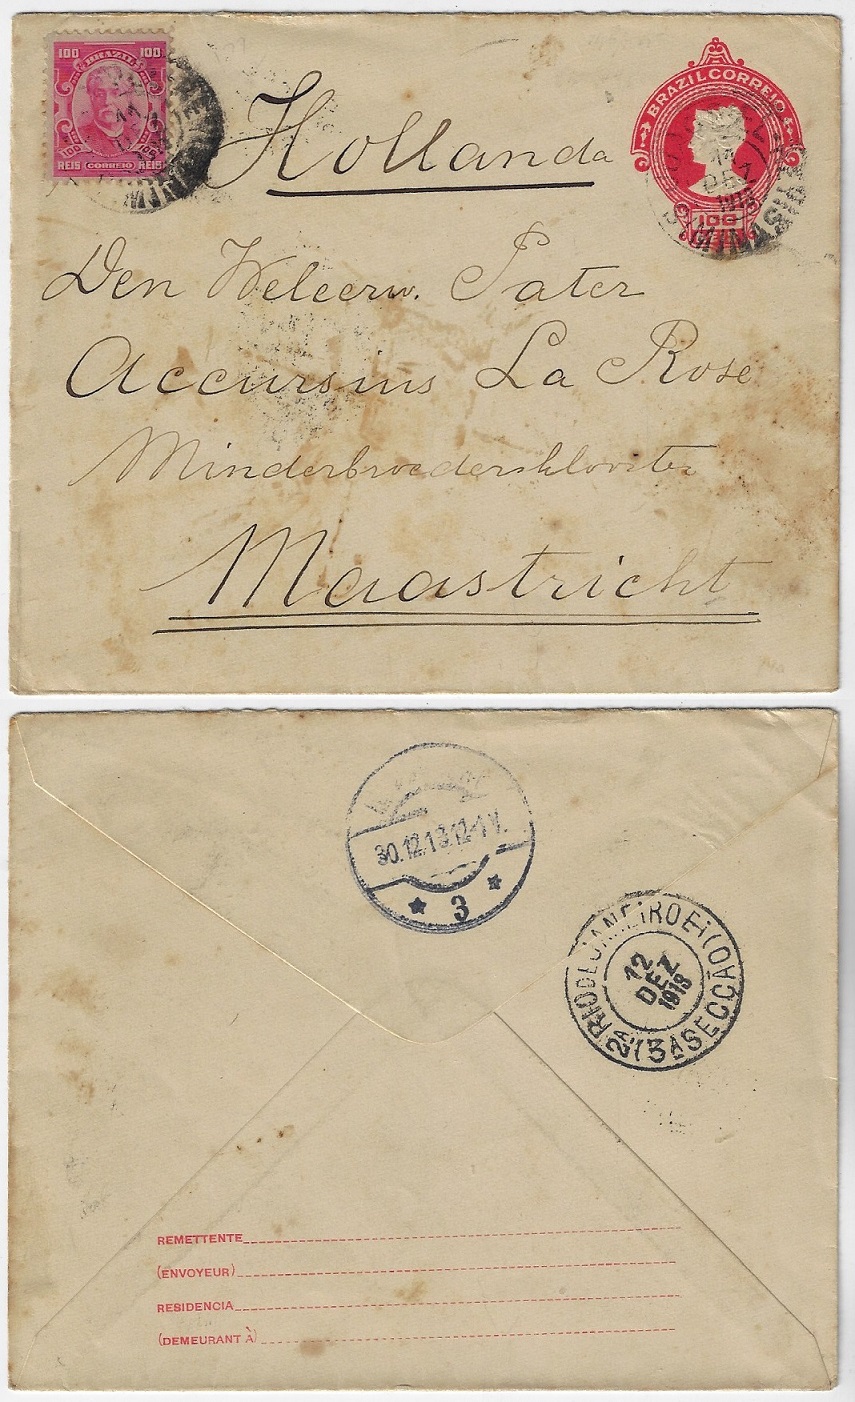 100 BRAZIL 100
100 100
REIS CORREIO REIS
Hollanda
BRAZIL CORREIO
100
11
DEZ
MINAS
Den Weleerw. Pater
Accursius La Rose
Minderbroedersklooster
Maastricht
30.12.13.12-1 V.
3
RIO DE JANEIRO
12
DEZ
1913
2A 3A SECÇÃO
REMETTENTE
(ENVOYEUR)
RESIDENCIA
(DEMEURANT À)